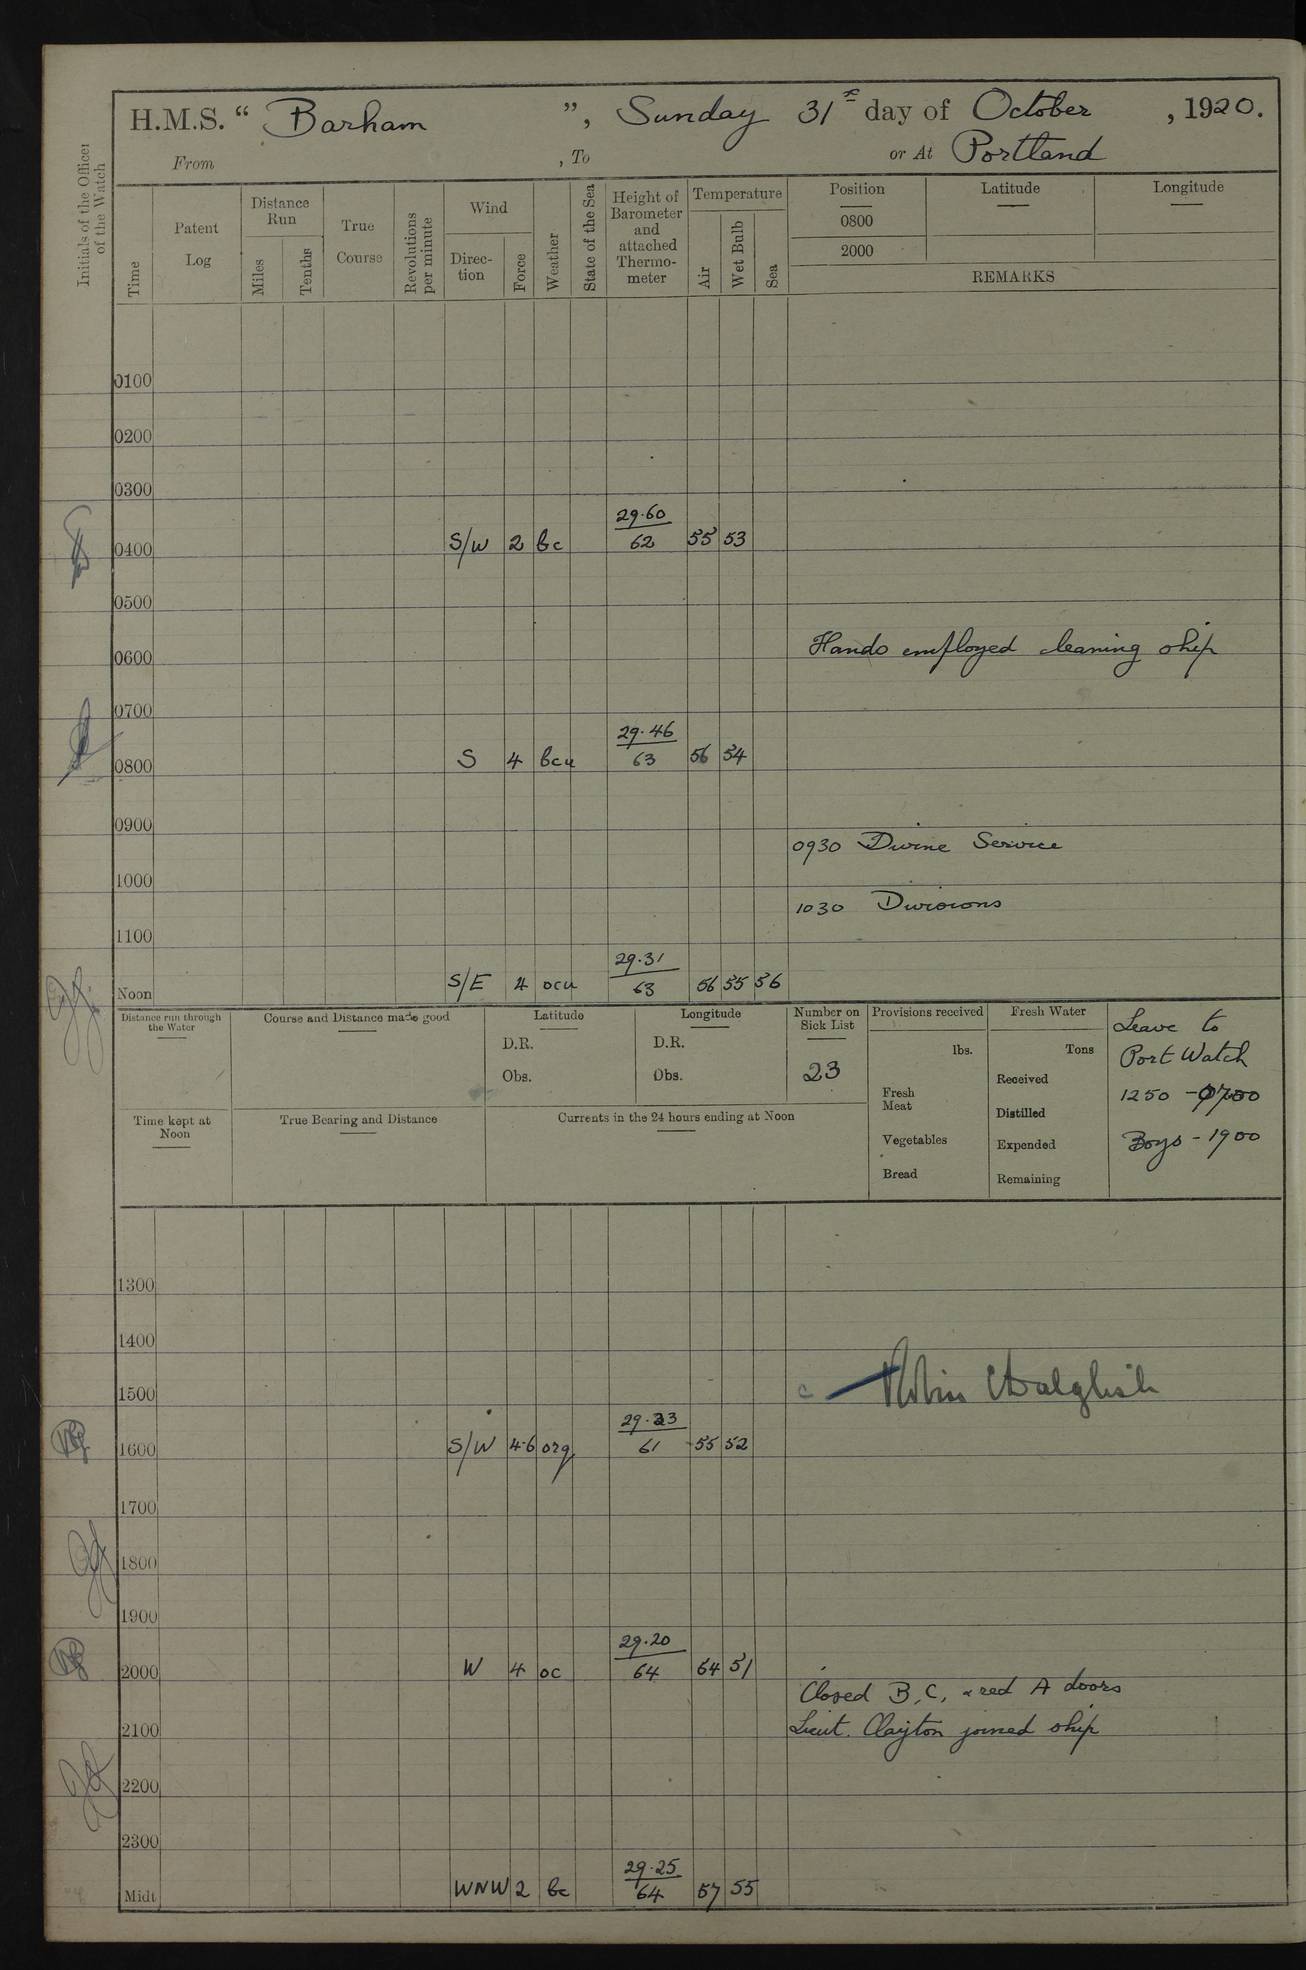 H.M.S. “ Barham ”, Sunday 31st day of October , 1920.
From , To or At Portland
Initials of the Officer of the Watch
Time
Patent Log
Distance Run
Miles
Tenths
True Course
Revolutions per minute
Wind
Direc-tion
Force
Weather
State of the Sea
Height of Barometer and attached Thermo-meter
Temperature
Air
Wet Bulb
Sea
Position Latitude Longitude
0800
2000
REMARKS
0100
0200
0300
29.60
0400 S/W 2 bc 62 55 53
0500
Hands employed cleaning ship
0600
0700
29.46
0800 S 4 bcu 63 56 54
0900
0930 Divine Service
1000
1030 Divisions
1100
29.31
Noon S/E 4 ocu 63 56 55 56
Distance run through the Water
Course and Distance made good
Latitude
D.R.
Obs.
Longitude
D.R.
Obs.
Number on Sick List
23
Provisions received
lbs.
Fresh Meat
Vegetables
Bread
Fresh Water
Tons
Received
Distilled
Expended
Remaining
Leave to
Port Watch
1250 - 0700
Boys - 1900
Time kept at Noon
True Bearing and Distance
Currents in the 24 hours ending at Noon
1300
1400
Robin C Dalglish
1500
29.23
1600 S/W 4-6 org 61 55 52
1700
1800
1900
29.20
2000 W 4 oc 64 64 51
Closed B, C, & red A doors
2100 Lieut. Clayton joined ship
2200
2300
29.25
Midt WNW 2 bc 64 57 55